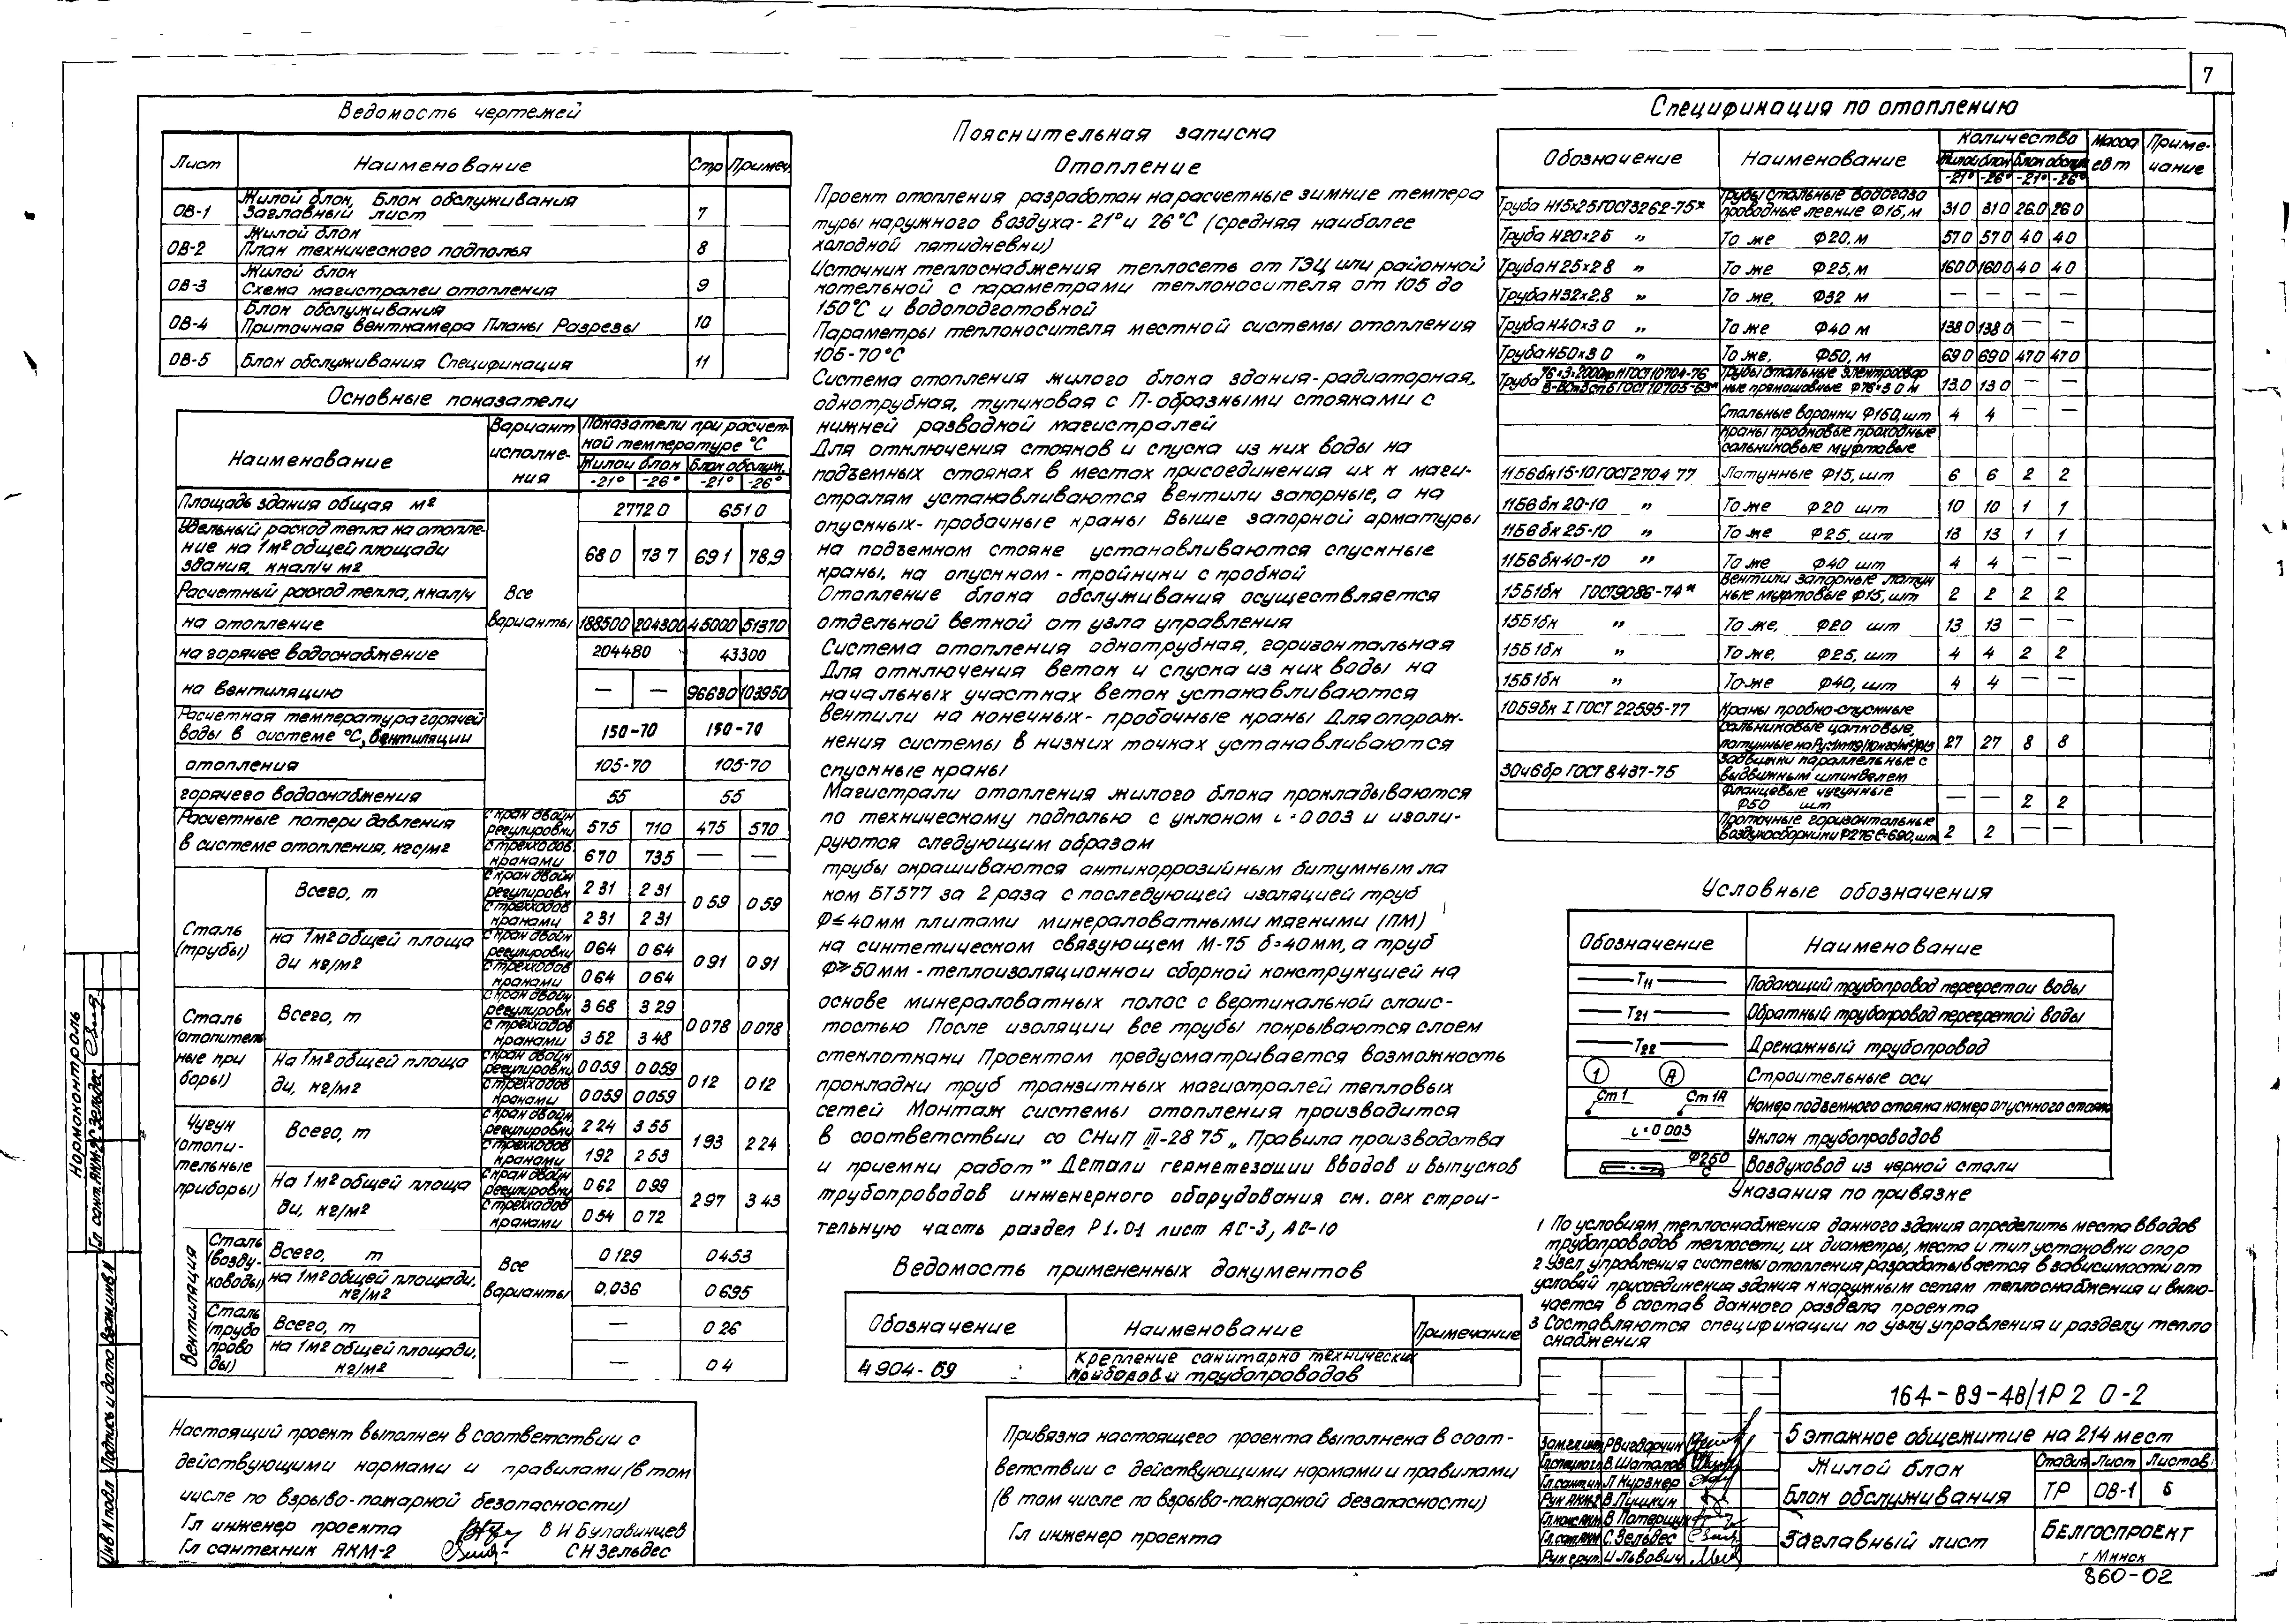 7
Ведомость чертежей
Лист Наименование Стр Примеч.
ОВ-1 Жилой блок, Блок обслуживания
Заглавный лист 7
ОВ-2 Жилой блок
План технического подполья 8
ОВ-3 Жилой блок
Схема магистралей отопления 9
ОВ-4 Блок обслуживания
Приточная венткамера Планы Разрезы 10
ОВ-5 Блок обслуживания Спецификация 11
Основные показатели
Наименование Вариант исполне-ния Показатели при расчет-
ной температуре °С
Жилой блок Блок обслуж.
-21° -26° -21° -26°
Площадь здания общая м2 2772 0 651 0
Удельный расход тепла на отопле-
ние на 1м2 общей площади
здания, ккал/ч м2 68 0 73 7 69 1 78,9
Расчетный расход тепла, ккал/ч Все
на отопление варианты 188500 204300 45000 51370
на горячее водоснабжение 204480 43300
на вентиляцию — — 96680 103950
Расчетная температура горячей
воды в системе °С, вентиляции 150-70 150-70
отопления 105-70 105-70
горячего водоснабжения 55 55
Расчетные потери давления
в системе отопления, кгс/м2
с кран двойн регулировки 575 710 475 570
с трехходов. кранами 670 735 — —
Сталь (трубы)
Всего, т
с кран двойн регулировк 2 31 2 31 0 59 0 59
с трехходов кранами 2 31 2 31
на 1м2 общей площа
ди кг/м2
с кран двойн регулировки 0 64 0 64 0 91 0 91
с трехходов кранами 0 64 0 64
Сталь (отопитель ные при боры)
Всего, т
с кран двойн регулировк 3 68 3 29 0 078 0 078
с трехходов кранами 3 52 3 48
На 1м2 общей площа
ди, кг/м2
с кран двойн регулировки 0 059 0 059 0 12 0 12
с трехходов кранами 0 059 0 059
Чугун (отопи-тельные приборы)
Всего, т
с кран двойн регулировки 2 24 3 55 1 93 2 24
с трехходов кранами 1 92 2 53
На 1м2 общей площа
ди, кг/м2
с кран двойн регулировки 0 62 0 99 2 97 3 43
с трехходов кранами 0 54 0 72
Вентиляция
Сталь (возду-ховоды) Всего, т Все варианты 0 129 0 453
на 1м2 общей площади, кг/м2 0,036 0 695
Сталь (трубо прово ды) Всего, т — 0 26
на 1м2 общей площади, кг/м2 — 0 4
Настоящий проект выполнен в соответствии с
действующими нормами и правилами (в том
числе по взрыво-пожарной безопасности)
Гл инженер проекта В И Булавинцев
Гл сантехник АКМ-2 С Н Зельдес
Пояснительная записка
Отопление
Проект отопления разработан на расчетные зимние темпера
туры наружного воздуха -21° и 26°С (средняя наиболее
холодной пятидневки)
Источник теплоснабжения теплосеть от ТЭЦ или районной
котельной с параметрами теплоносителя от 105 до
150°С и водоподготовкой
Параметры теплоносителя местной системы отопления
105-70°С
Система отопления жилого блока здания-радиаторная,
однотрубная, тупиковая с П-образными стояками с
нижней разводкой магистралей
Для отключения стояков и спуска из них воды на
подъемных стояках в местах присоединения их к маги-
стралям устанавливаются вентили запорные, а на
опускных- пробочные краны Выше запорной арматуры
на подъемном стояке устанавливаются спускные
краны, на опускном - тройники с пробкой
Отопление блока обслуживания осуществляется
отдельной веткой от узла управления
Система отопления однотрубная, горизонтальная
Для отключения веток и спуска из них воды на
начальных участках веток устанавливаются
вентили на конечных- пробочные краны Для опорож-
нения системы в низких точках устанавливаются
спускные краны
Магистрали отопления жилого блока прокладываются
по техническому подполью с уклоном i=0 003 и изоли-
руются следующим образом
трубы окрашиваются антикоррозийным битумным ла
ком БТ577 за 2 раза с последующей изоляцией труб
Ф≤40мм плитами минераловатными мягкими (ПМ)
на синтетическом связующем М-75 б=40мм, а труб
Ф≥50мм - теплоизоляционной сборной конструкцией на
основе минераловатных полос с вертикальной слоис-
тостью После изоляции все трубы покрываются слоем
стеклоткани Проектом предусматривается возможность
прокладки труб транзитных магистралей тепловых
сетей Монтаж системы отопления производится
в соответствии со СНиП III-28 75 „Правила производства
и приемки работ" Детали герметезации вводов и выпусков
трубопроводов инженерного оборудования см. арх строи-
тельную часть раздел Р1.01 лист АС-3, АС-10
Ведомость примененных документов
Обозначение Наименование Примечание
4 904-69 Крепление санитарно технических
приборов и трубопроводов
Привязка настоящего проекта выполнена в соот-
ветствии с действующими нормами и правилами
(в том числе по взрыво-пожарной безопасности)
Гл инженер проекта
Спецификация по отоплению
Обозначение Наименование Количества Масса ед т Приме-чание
Жилой блок Блок обслуж
-21° -26° -21° -26°
Труба Н15х25 ГОСТ3262-75* Трубы стальные водогазо
проводные легкие Ф15, м 31 0 31 0 26.0 26 0
Труба Н20х25 „ То же Ф20, м 57 0 57 0 4 0 4 0
Труба Н25х28 „ То же Ф25, м 160 0 160 0 4 0 4 0
Труба Н32х2,8 „ То же, Ф32 м — — — —
Труба Н40х3 0 „ То же Ф40 м 138 0 138 0 — —
Труба Н50х3 0 „ То же, Ф50, м 69 0 69 0 47 0 47 0
Труба Трубы стальные электросвар
ные прямошовные Ф76х3 0 м 13.0 13 0 — —
Стальные воронки Ф150, шт 4 4 — —
Краны пробковые проходные
сальниковые муфтовые
11Б6бк15-10 ГОСТ2704 77 Латунные Ф15, шт 6 6 2 2
11Б6бк 20-10 „ То же Ф20 шт 10 10 1 1
11Б6бк 25-10 „ То же Ф25, шт 13 13 1 1
11Б6бк40-10 „ То же Ф40 шт 4 4 — —
15Б1бк ГОСТ9086-74* Вентили запорные латун
ные муфтовые Ф15, шт 2 2 2 2
15Б1бк „ То же, Ф20 шт 13 13 — —
15Б1бк „ То же, Ф25, шт 4 4 2 2
15Б1бк „ То же Ф40, шт 4 4 — —
10Б9бк I ГОСТ 22595-77 Краны пробно-спускные
сальниковые цапковые,
латунные 27 27 8 8
30ч6бр ГОСТ 8437-75 Задвижки параллельные с
выдвижным шпинделем
Фланцевые чугунные
Ф50 шт — — 2 2
Проточные горизонтальные
воздухосборники Ф276 ℓ=690, шт 2 2 — —
Условные обозначения
Обозначение Наименование
Т11 Подающий трубопровод перегретой воды
Т21 Обратный трубопровод перегретой воды
Т22 Дренажный трубопровод
1 А Строительные оси
Ст 1 Ст 1А Номер подъемного стояка номер опускного стояка
i=0 003 Уклон трубопроводов
Ф250 С Воздуховод из черной стали
Указания по привязке
1 По условиям теплоснабжения данного здания определить места вводов
трубопроводов теплосети, их диаметры, места и тип установки опор
2 Узел управления системы отопления разрабатывается в зависимости от
условий присоединения здания к наружным сетям теплоснабжения и вклю-
чается в состав данного раздела проекта
3 Составляются спецификации по узлу управления и разделу тепло
снабжения
164-89-48/1Р 2 0-2
5 этажное общежитие на 214 мест
Жилой блок
Блок обслуживания
Стадия Лист Листов
ТР ОВ-1 5
Заглавный лист
БЕЛГОСПРОЕКТ
г Минск
Р Вигдорчик
В. Шаталов
Гл.сантехн Л Курзнер
Рук АКМ-2 В. Пушкин
В Потерщук
Гл.сан.АКМ С. Зельдес
Рук груп. И Львович
860-02
Нормоконтроль
Гл сант. АКМ-2 С Зельдес
Инв N подл Подпись и дата Взам.инв N